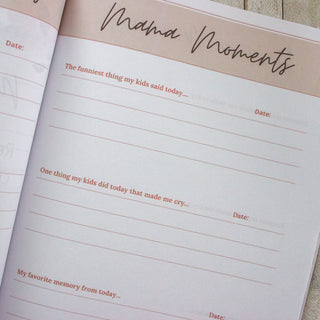 Mama Moments
Date:
The funniest thing my kids said today...
Date:
One thing my kids did today that made me cry...
Date:
My favorite memory from today...
Date: